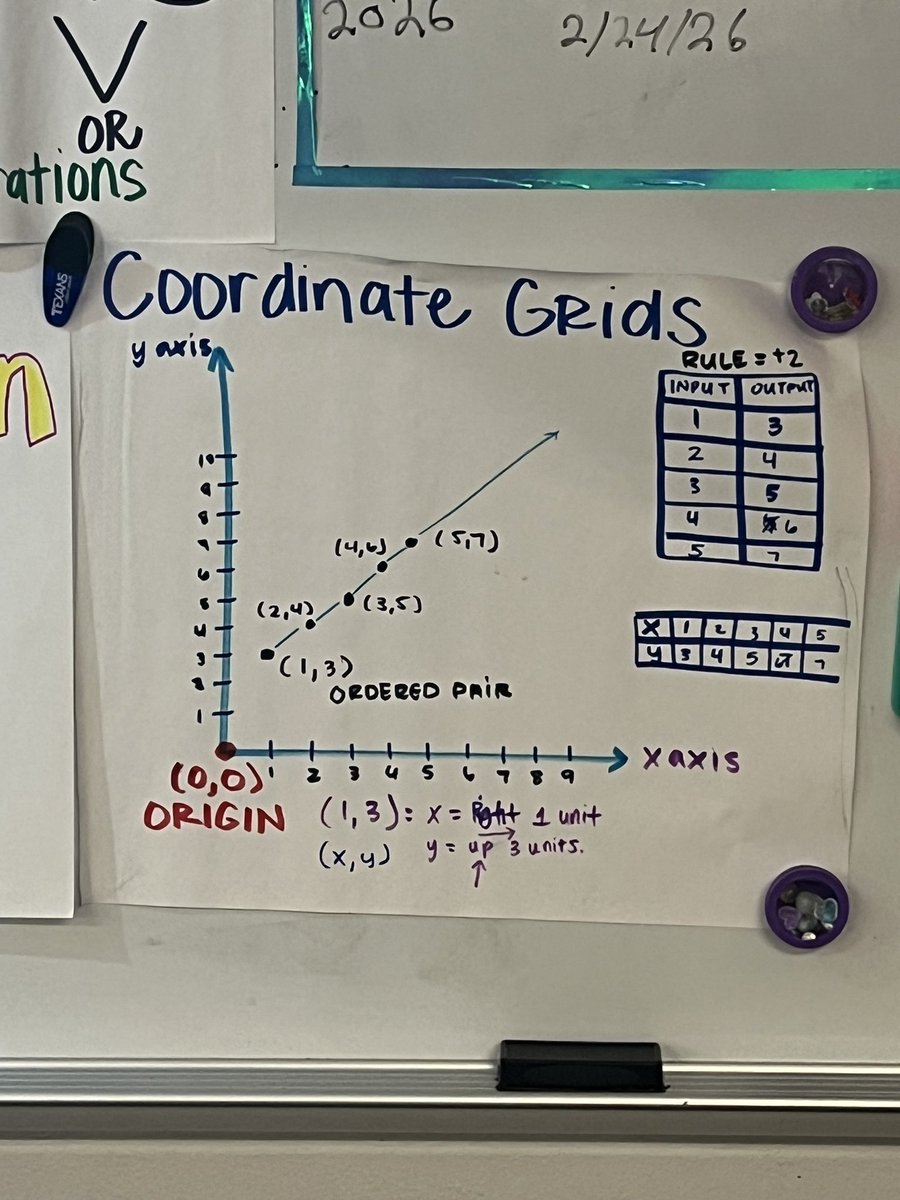 2026
2/24/26
OR
ations
TEXANS
n
Coordinate Grids
y axis
10
9
8
7
6
5
4
3
2
1
(4,6)
(5,7)
(2,4)
(3,5)
(1,3)
ORDERED PAIR
1 2 3 4 5 6 7 8 9
x axis
(0,0)
ORIGIN
(1,3): x = Right 1 unit
(x,y) y = up 3 units.
RULE = +2
INPUT OUTPUT
1 3
2 4
3 5
4 6
5 7
X 1 2 3 4 5
Y 3 4 5 7